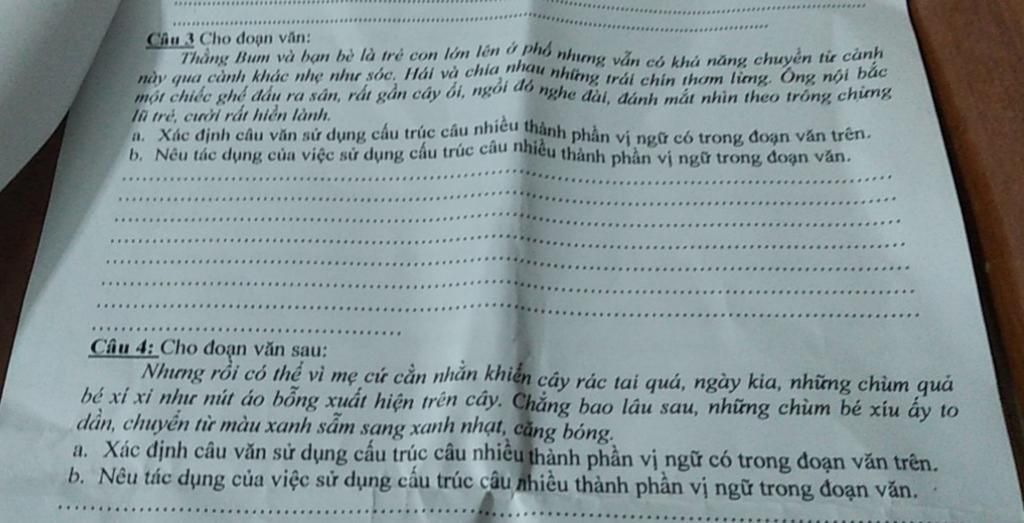 Câu 3 Cho đoạn văn:
Thằng Bum và bạn bè là trẻ con lớn lên ở phố nhưng vẫn có khả năng chuyền từ cành
này qua cành khác nhẹ như sóc. Hái và chia nhau những trái chín thơm lừng. Ông nội bắc
một chiếc ghế đẩu ra sân, rất gần cây ổi, ngồi đó nghe đài, đánh mắt nhìn theo trông chừng
lũ trẻ, cười rất hiền lành.
a. Xác định câu văn sử dụng cấu trúc câu nhiều thành phần vị ngữ có trong đoạn văn trên.
b. Nêu tác dụng của việc sử dụng cấu trúc câu nhiều thành phần vị ngữ trong đoạn văn.
Câu 4: Cho đoạn văn sau:
Nhưng rồi có thể vì mẹ cứ cằn nhằn khiến cây rác tai quá, ngày kia, những chùm quả
bé xí xi như nút áo bỗng xuất hiện trên cây. Chẳng bao lâu sau, những chùm bé xíu ấy to
dần, chuyển từ màu xanh sẫm sang xanh nhạt, căng bóng.
a. Xác định câu văn sử dụng cấu trúc câu nhiều thành phần vị ngữ có trong đoạn văn trên.
b. Nêu tác dụng của việc sử dụng cấu trúc câu nhiều thành phần vị ngữ trong đoạn văn.